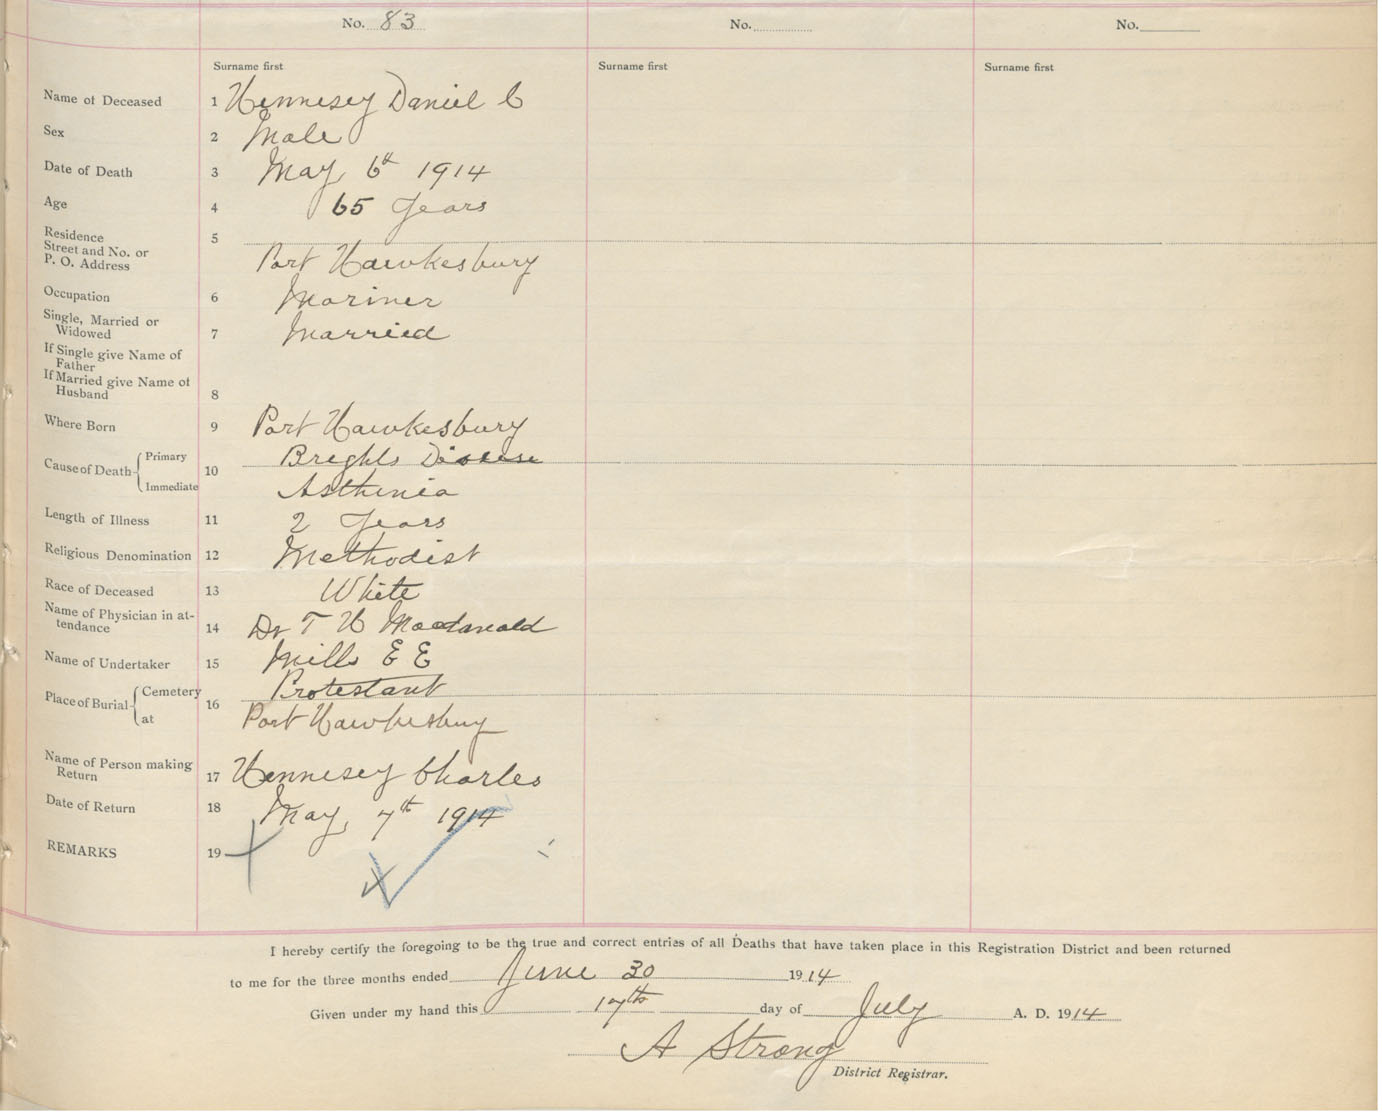 No. 83 No. No.
Surname first Surname first Surname first
Name of Deceased 1 Hennesey Daniel C
Sex 2 Male
Date of Death 3 May 6th 1914
Age 4 65 Years
Residence 5
Street and No. or
P. O. Address Port Hawkesbury
Occupation 6 Mariner
Single, Married or
Widowed 7 Married
If Single give Name of
Father
If Married give Name of
Husband 8
Where Born 9 Port Hawkesbury
Cause of Death Primary 10 Brights Disease
Immediate Asthenia
Length of Illness 11 2 Years
Religious Denomination 12 Methodist
Race of Deceased 13 White
Name of Physician in at-
tendance 14 Dr T H Macdonald
Name of Undertaker 15 Mills E E
Place of Burial Cemetery 16 Protestant
at Port Hawkesbury
Name of Person making
Return 17 Hennesey Charles
Date of Return 18 May, 7th 1914
REMARKS 19
I hereby certify the foregoing to be the true and correct entries of all Deaths that have taken place in this Registration District and been returned
to me for the three months ended June 30 1914
Given under my hand this 17th day of July A. D. 1914
A Strong
District Registrar.